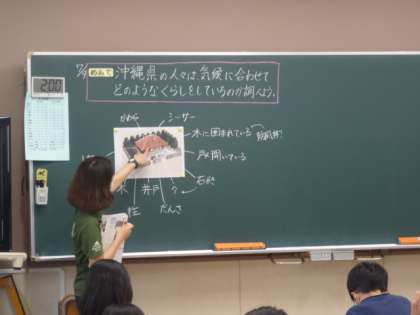 7/9 めあて 沖縄県の人々は、気候に合わせて
どのようなくらしをしているのか調べよう。
2:00
かわら
シーサー
木に囲まれている
防風林?
戸が開いている
石垣
木
井戸
?
だんさ